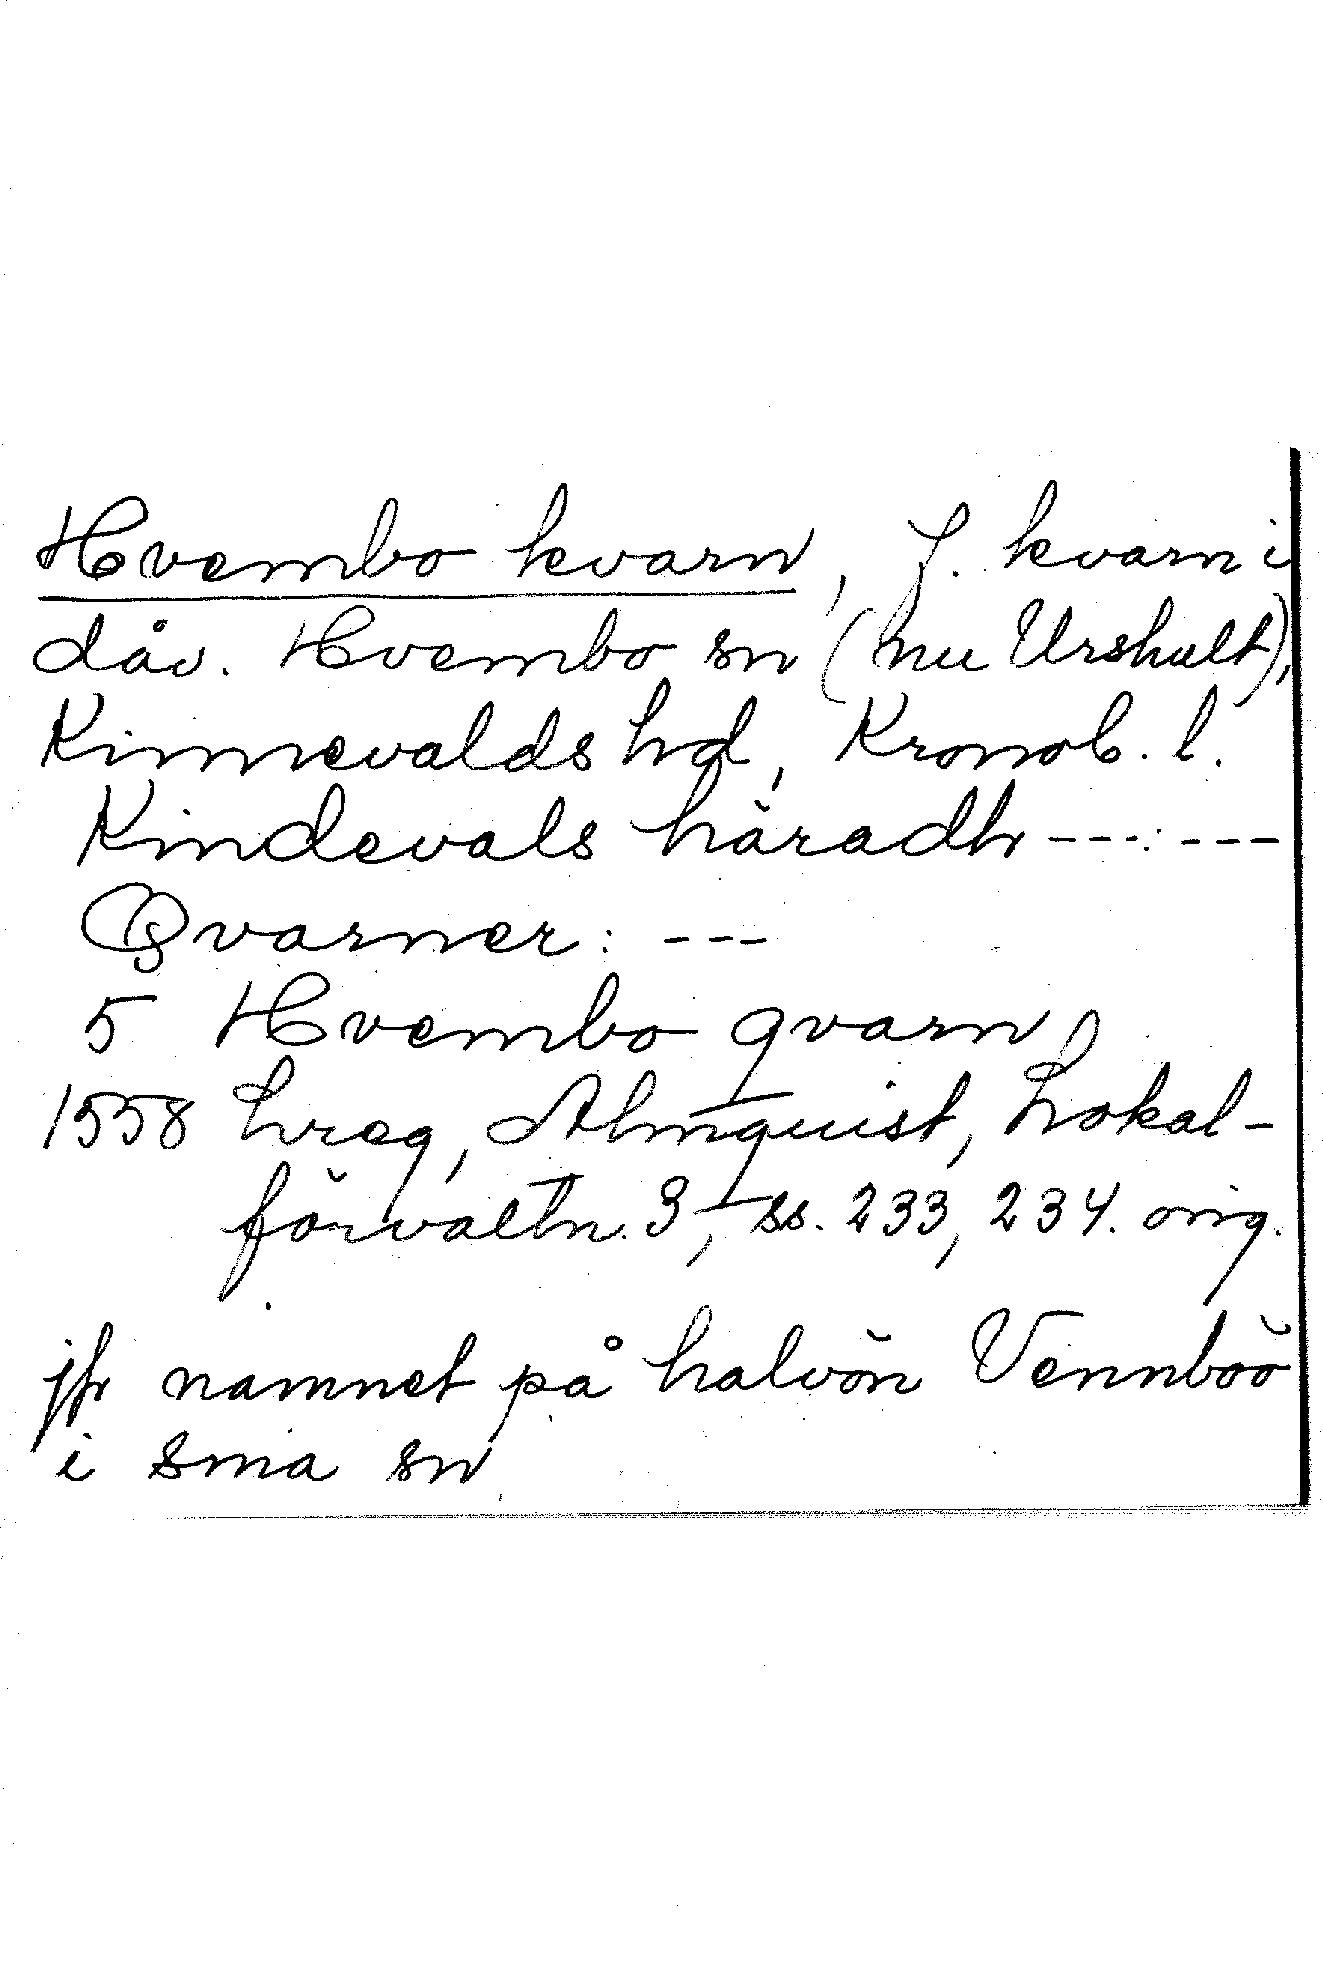 Hvembo kvarn, f. kvarn i
dåv. Hvembo sn (nu Urshult),
Kinnevalds hd, Kronob. l.
Kindevals häradh ---:---
Qvarner: ---
5 Hvembo qvarn
1558 Lreg, Almquist, Lokal-
förvaltn. 3, ss. 233, 234. orig.
jfr namnet på halvön Vennböö
i sma sn